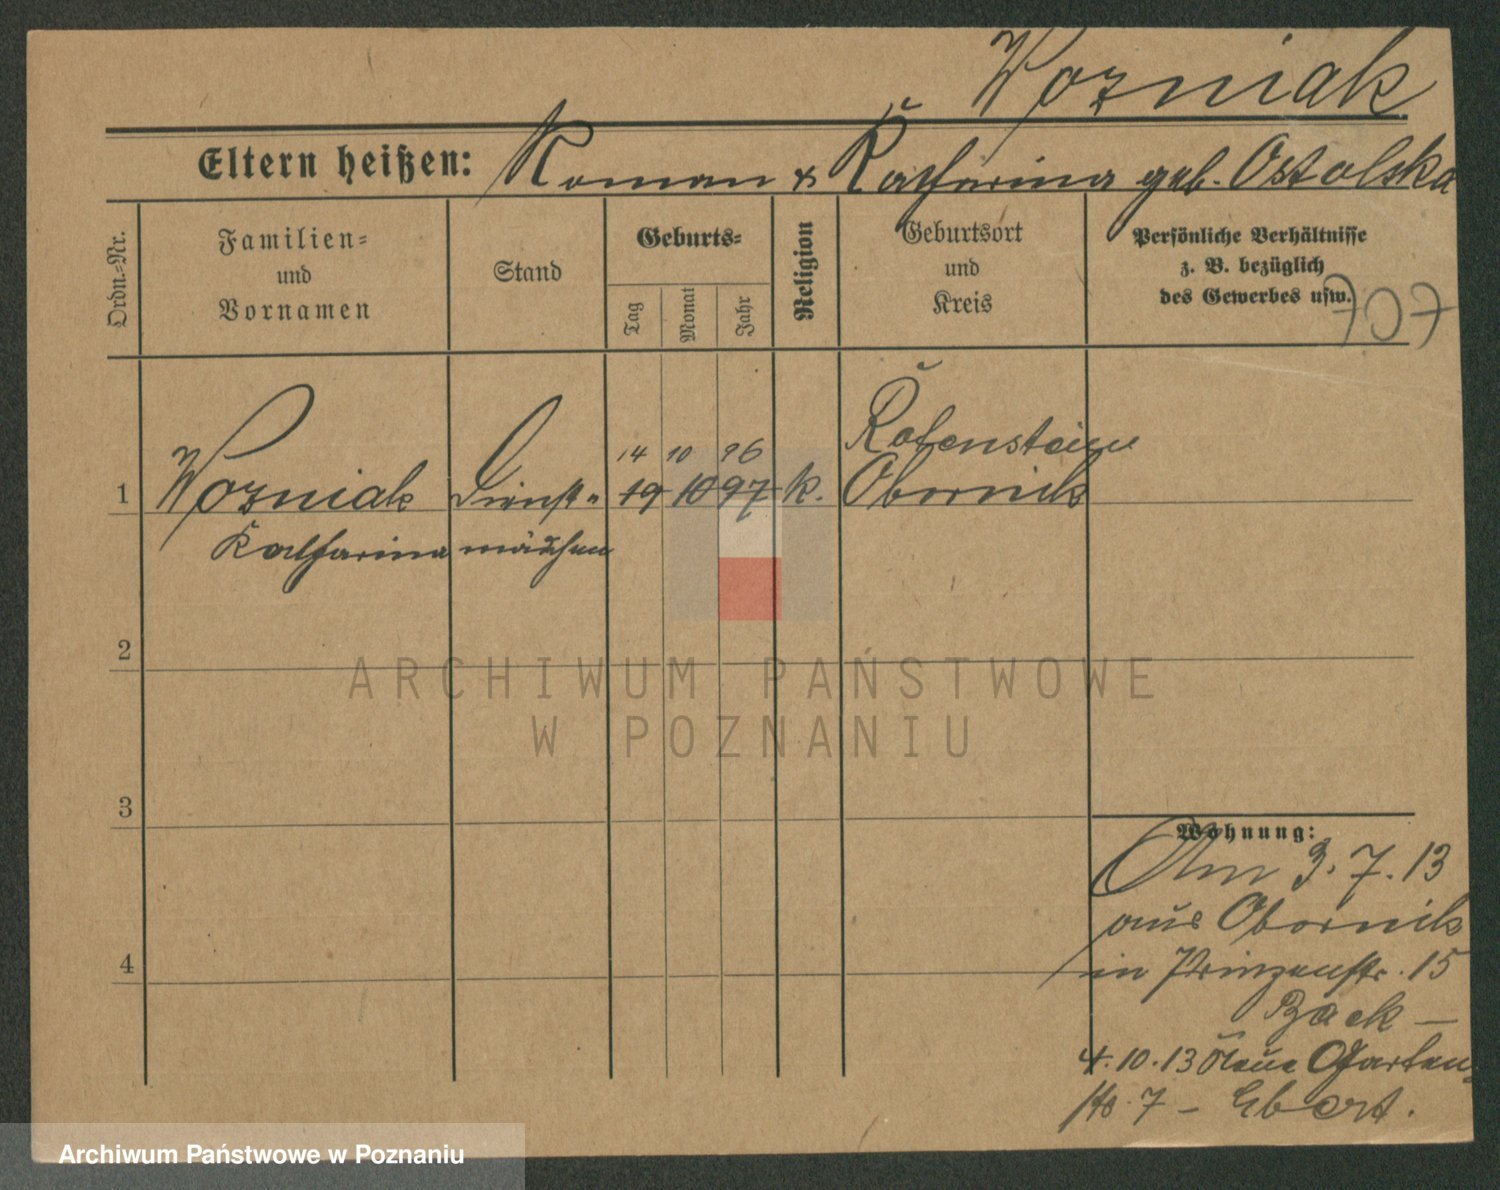 Wozniak
Eltern heißen: Roman & Katharina geb. Ostolska
Ordn.-Nr.
Familien-
und
Vornamen
Stand
Geburts-
Tag
Monat
Jahr
Religion
Geburtsort
und
Kreis
Persönliche Verhältnisse
z. B. bezüglich
des Gewerbes usw.
707
14 10 96
Wozniak
Katharina
Dienst-
mädchen
1
19 10 97 k.
Obornik
2
ARCHIWUM PAŃSTWOWE
W POZNANIU
3
Wohnung:
Am 3.7.13
aus Obornik
in Prinzenstr. 15
4
4.10.13 Neue Garten-
str. 7 - Ebert.
Archiwum Państwowe w Poznaniu